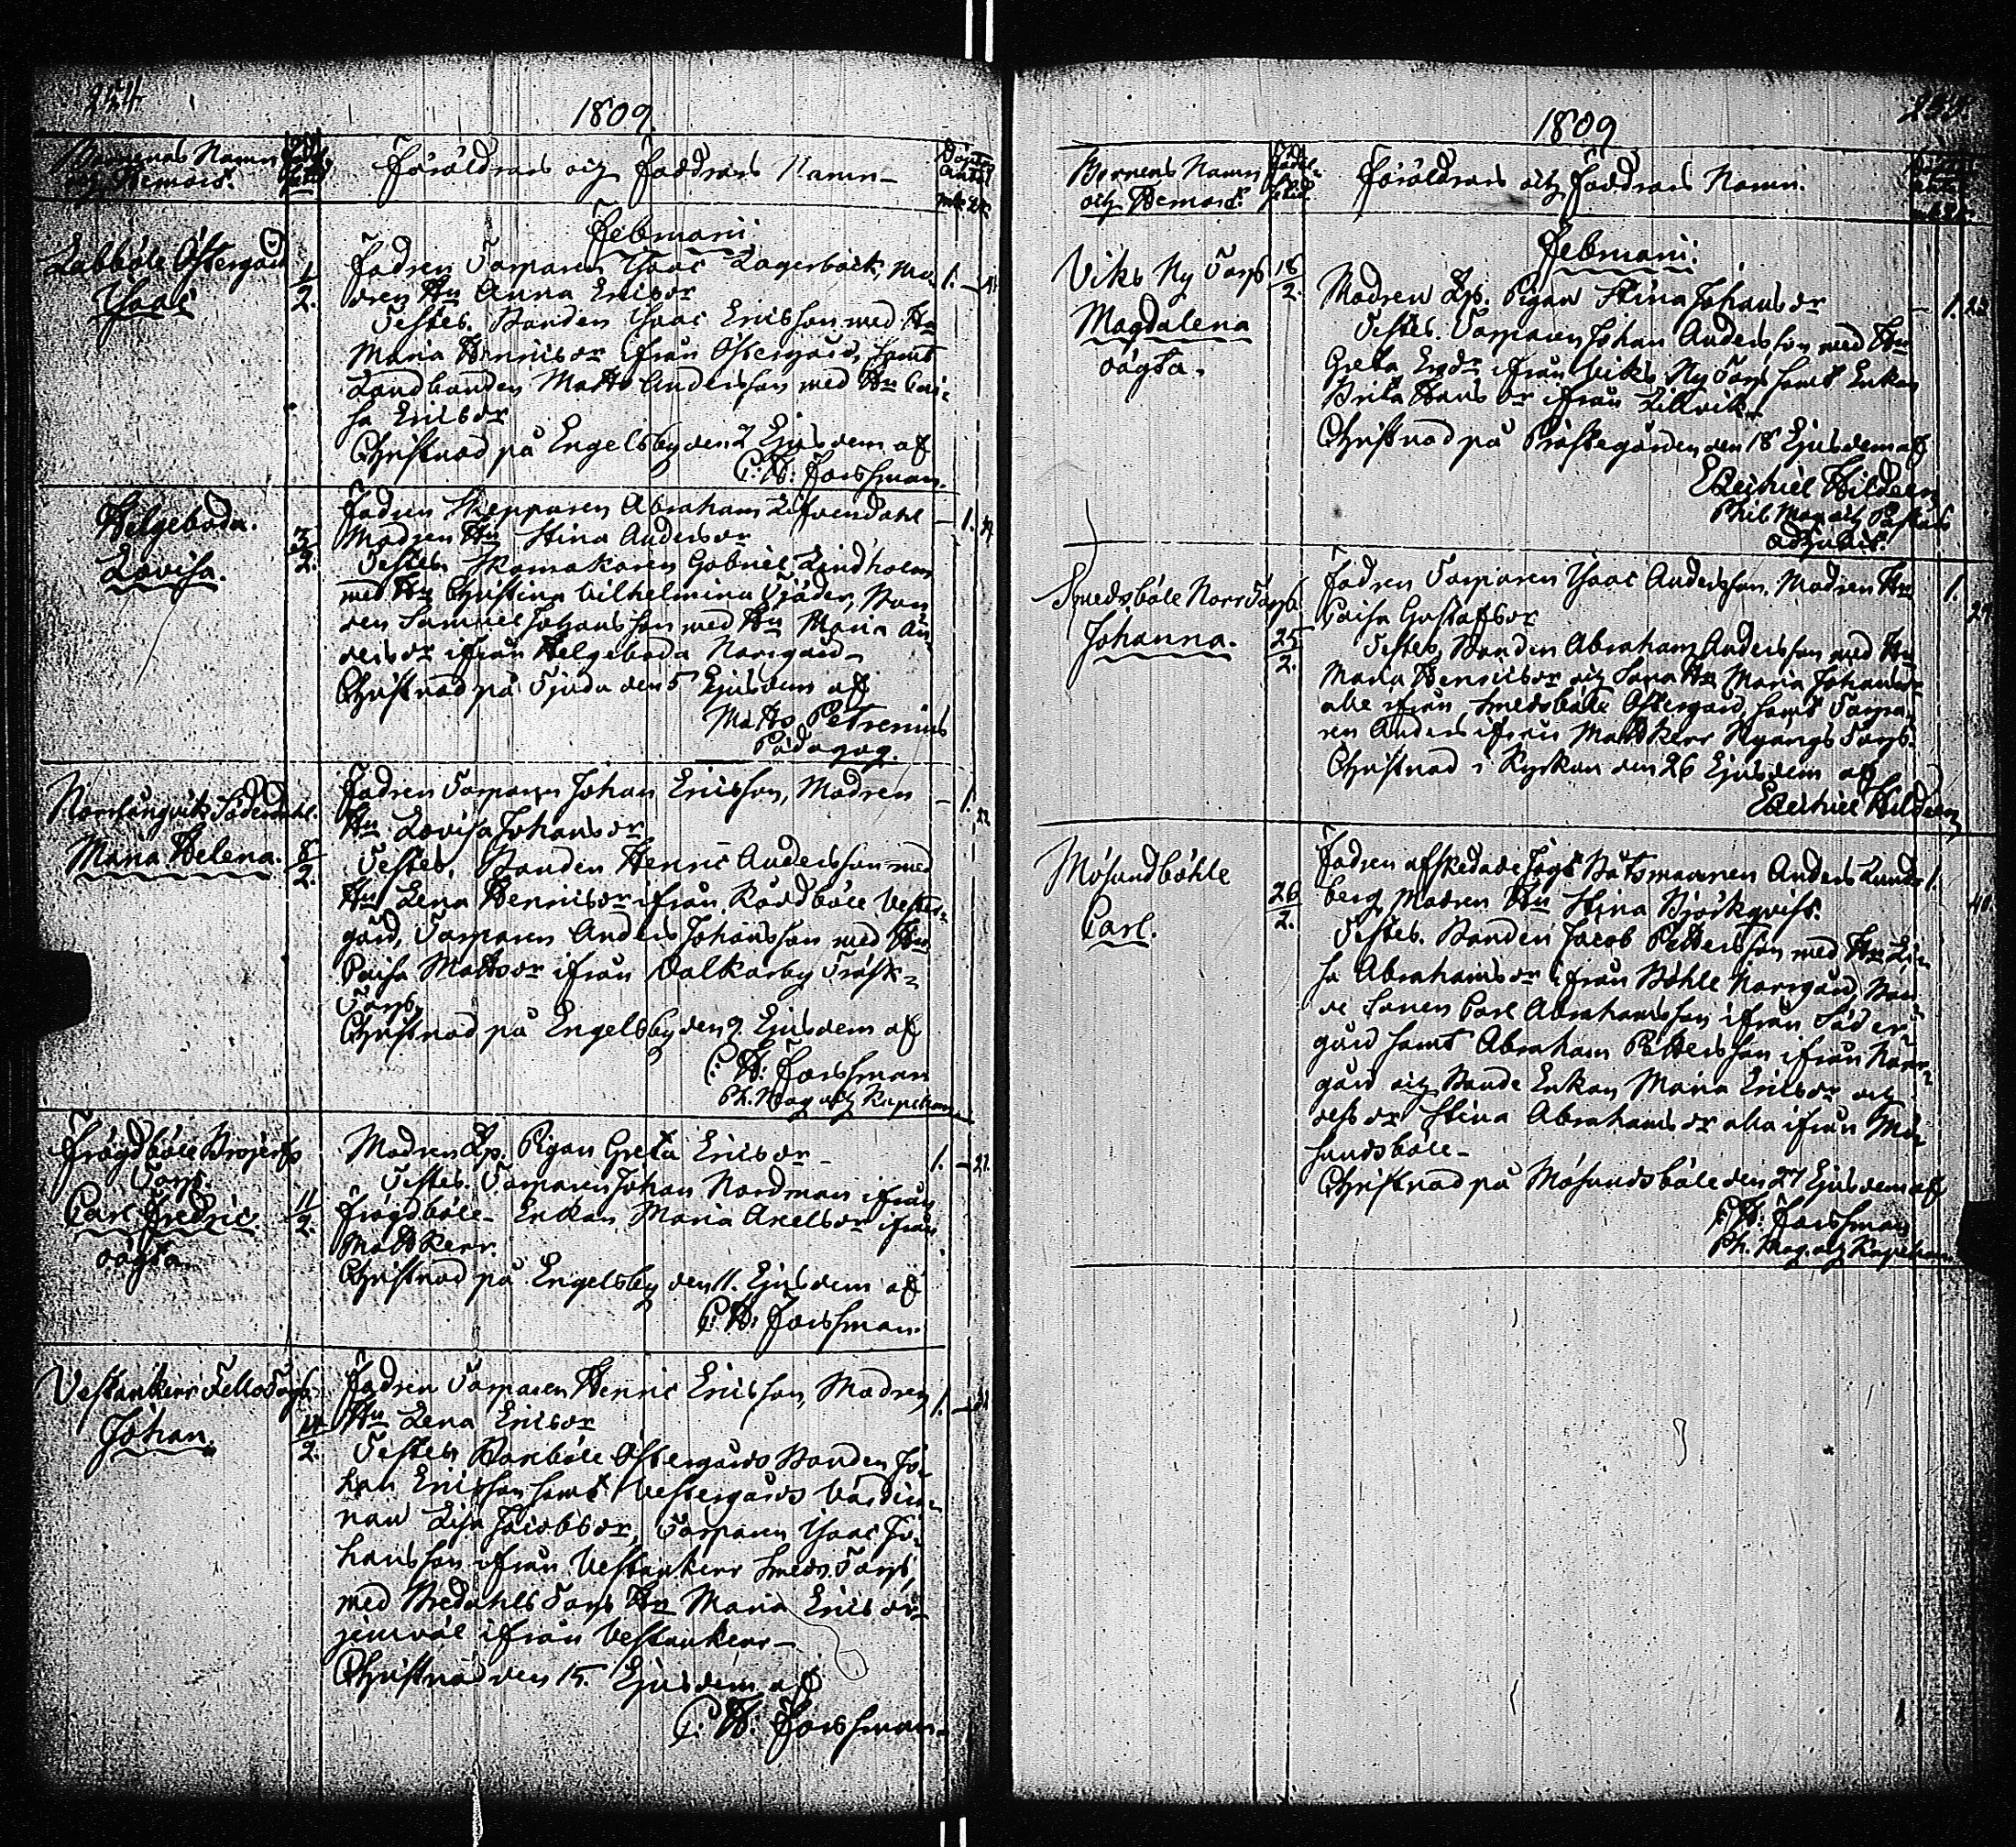 254
1809
Barnens Namn
och Hemort.
Föräldrars och Faddrars Namn
Februarii
Labböle Östergård
Isaac
1/2.
Fadren Torparen Isaac Lagerbäck, Mo-
dren Hu Anna Ericsdr
Testes. Bonden Isaac Ericsson med Hu
Maria Henricsdr ifrån Östergård, samt
Landbonden Matts Andersson med Hu Cai-
sa Ericsdr
Christnad på Engelsby den 2 Ejusdem af
C: H: Forssman.
1.
Helgeboda.
Lovisa.
3/2.
Fadren Skepparen Abraham Löfvendahl
Modren Hu Stina Andersdr
Testes Skomakaren Gabriel Lindholm
med Hu Christina Vilhelmina Tjäder, Bon
den Samuel Johansson med Hu Maria An
dersdr ifrån Helgeboda Norrgård
Christnad på Tjuda den 5 Ejusdem af
Matts Petrenius
Pädagog.
1.
Norrlångvik Söderdahl.
Maria Helena.
8/2.
Fadren Torparen Johan Ericsson, Modren
Hu Lovisa Johansdr
Testes, Bonden Henric Andersson med
Hu Lena Henricsdr ifrån Rövdböle Vester-
gård, Torparen Anders Johansson med Hu
Caisa Mattsdr ifrån Dalkarby Träsk-
Torp.
Christnad på Engelsby den 9. Ejusdem af
C: H: Forssman
Ph. Mag och Kapellan
1.
Frögdböle Brojerss
Torp.
Carl Fredric.
oägta.
11/2.
Modren Lp. Pigan Greta Ericsdr
Testes. Torparen Johan Nordman ifrån
Frögdböle Enkan Maria Axelsdr ifrån
Mattkerr.
Christnad på Engelsby den 11. Ejusdem af
C: H: Forssman.
1.
Vestankerr Torp
Johan.
14/2.
Fadren Torparen Henric Ericsson, Modren
Hu Lena Ericsdr
Testes Östergårds Bonden Jo-
han Ericsson samt Vestergårds Värdin-
nan Lisa Jacobsdr, Torparen Isaac Jo-
hansson ifrån Vestankerr Smeds Torp,
med Bredahls Torps Hu Maria Ericsdr
jemväl ifrån Vestankerr
Christnad den 15. Ejusdem af
C: H: Forssman
1.
255.
1809
Barnens Namn
och Hemort.
Föräldrars och Faddrars Namn.
Februarii.
Viks Ny Torp
Magdalena
oägta.
18/2.
Modren Lp. Pigan Stina Johansdr
Testes. Torparen Johan Andersson med Hu
Greta Ersdr ifrån Viks Ny Torp samt Enkan
Brita Hansdr ifrån Lillvik
Christnad på Prästegården den 18 Ejusdem af
Ezechiel Hildeen
Phil: Mag och Pastors
Adjunct.
1.
Smedsböle Norr Torp.
Johanna.
25/2.
Fadren Torparen Isaac Andersson. Modren Hu
Caisa Gustafsdr
Testes, Bonden Abraham Andersson med Hu
Maria Henricsdr och Sona Hu Maria Johansdr
alla ifrån Smedsböle Östergård, samt Torpa-
ren Anders ifrån Mattkerr Nyängs Torp.
Christnad i Kyrkan den 26 Ejusdem af
Ezechiel Hildeen
1.
Mösundböhle
Carl.
26/2.
Fadren afskedade Båtsmannen Anders Lund-
berg, Modren Hu Stina Björkqvist.
Testes. Bonden Jacob Pettersson med Hu Li-
sa Abrahamsdr ifrån Böhle Norrgård, Bon
de Sonen Carl Abrahamsson ifrån Söder
gård samt Abraham Pettersson ifrån Norr-
gård och Bonde Enkan Maria Ericsdr och
dess dr Stina Abrahamsdr alla ifrån Mö-
sundsböle
Christnad på Mösundsböle den 27 Ejusdem af
C: H: Forssman
Ph. Mag. och Kapellan
1.